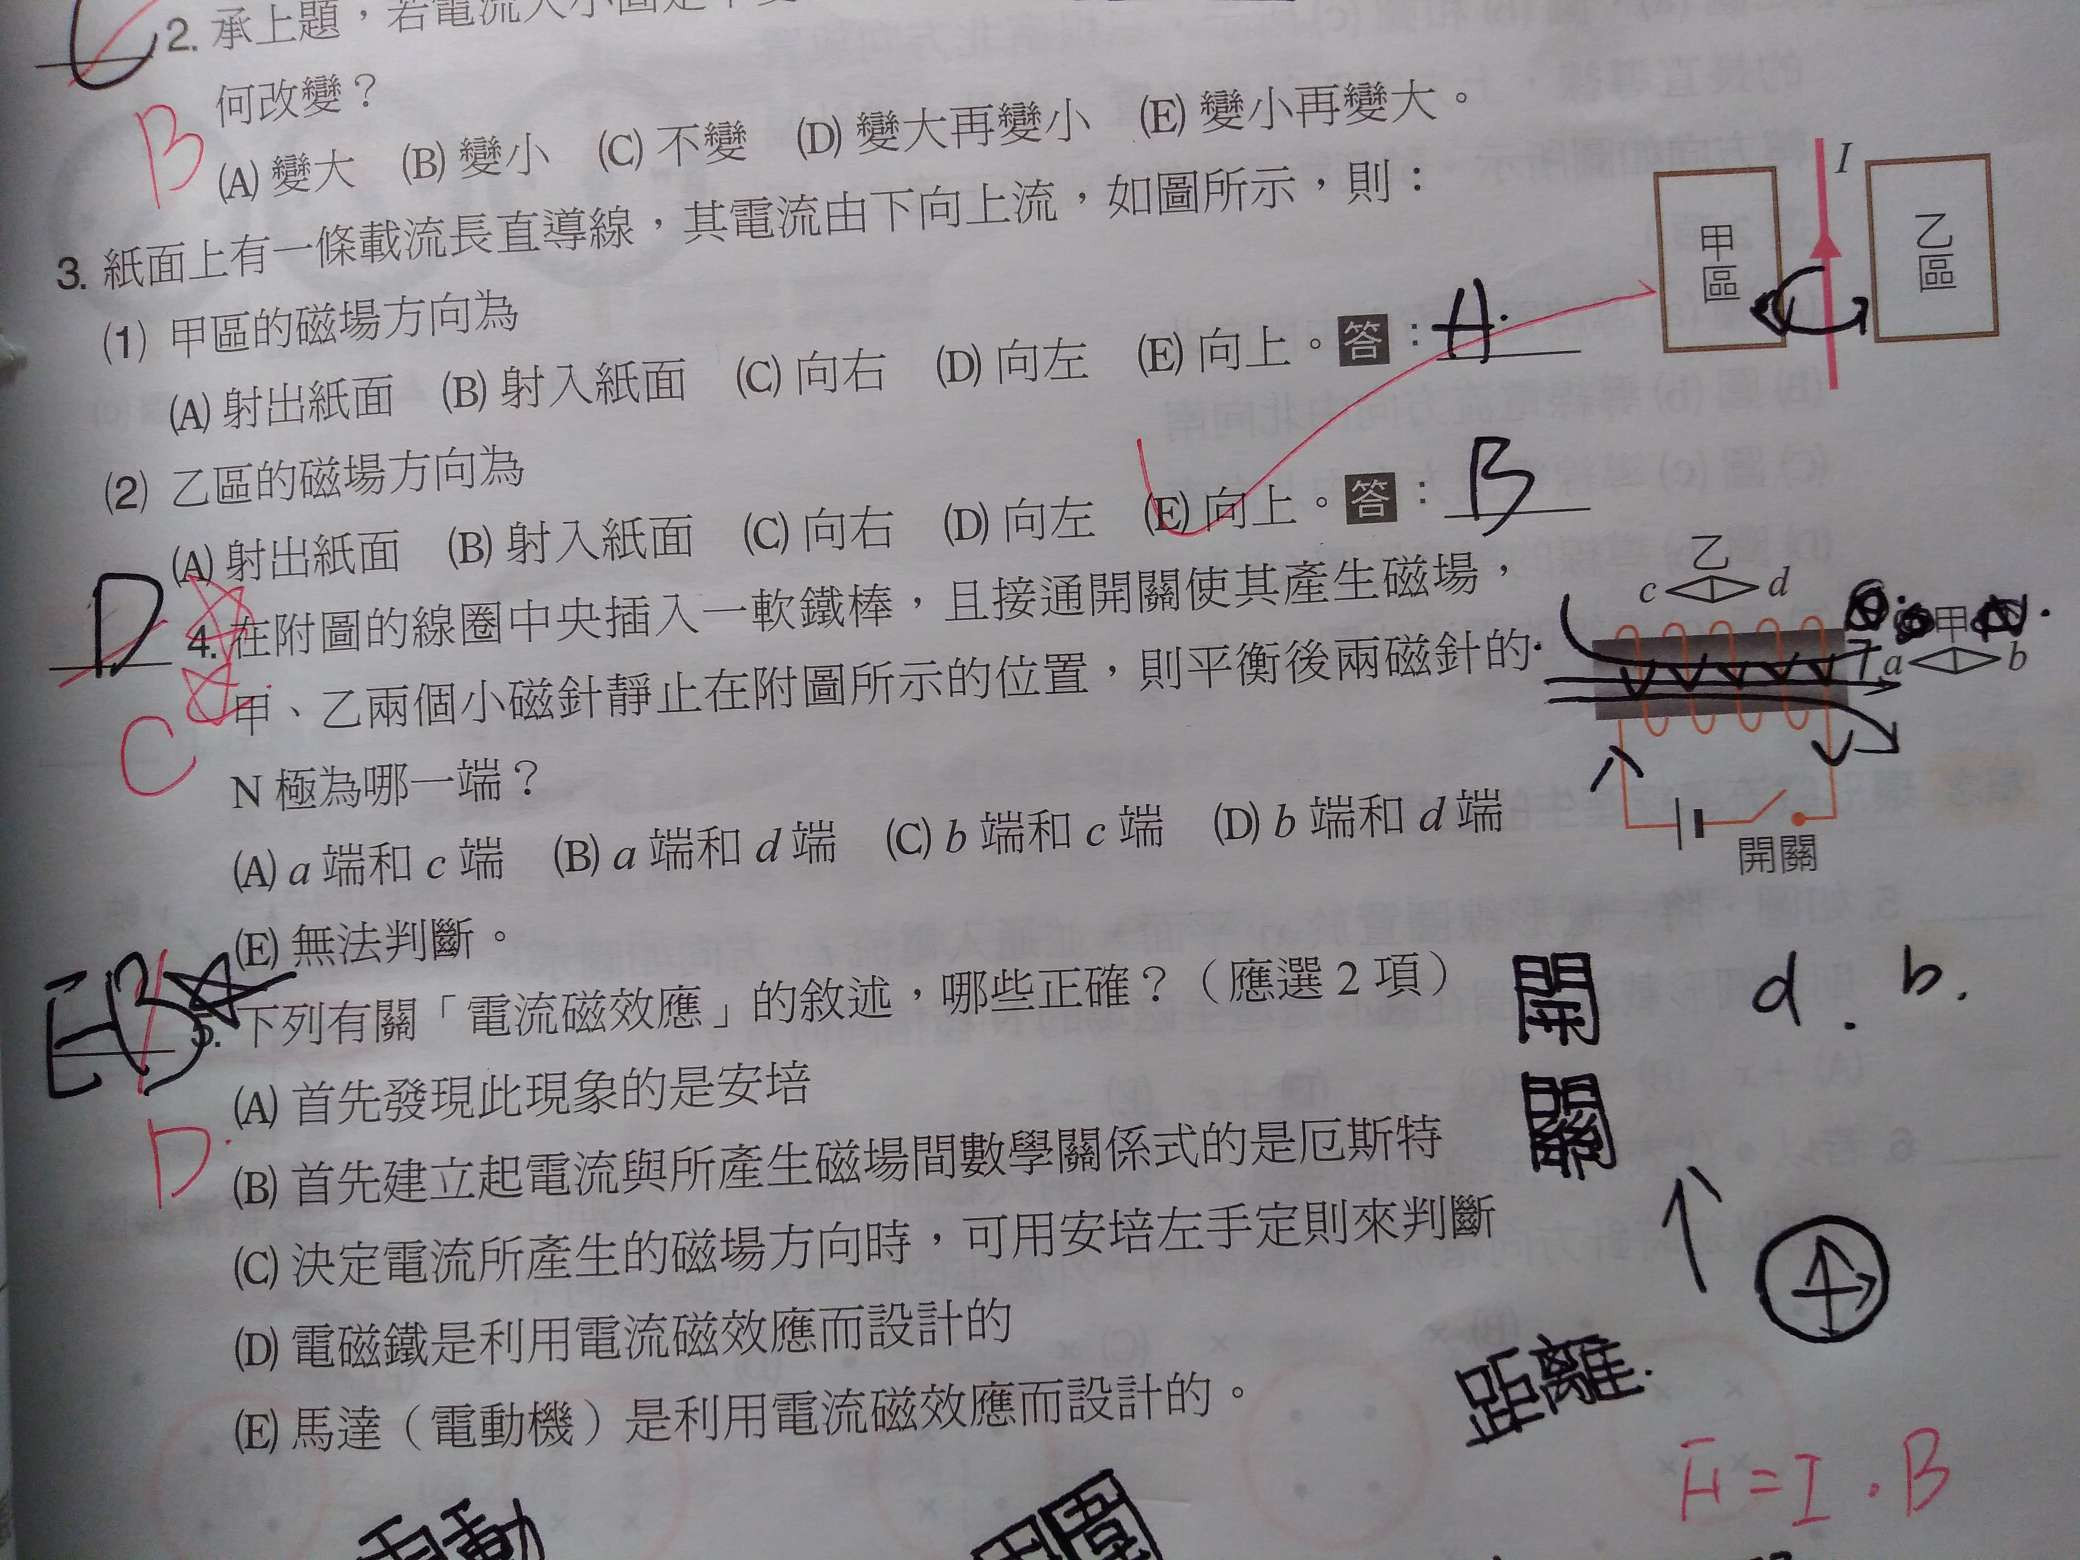 C
2. 承上題，若電流大小固定不變
何改變？
B
(A) 變大 (B) 變小 (C) 不變 (D) 變大再變小 (E) 變小再變大。
3. 紙面上有一條載流長直導線，其電流由下向上流，如圖所示，則：
(1) 甲區的磁場方向為
(A) 射出紙面 (B) 射入紙面 (C) 向右 (D) 向左 (E) 向上。答：A.
(2) 乙區的磁場方向為
(A) 射出紙面 (B) 射入紙面 (C) 向右 (D) 向左 (E) 向上。答：B
I
甲區
乙區
D
4. 在附圖的線圈中央插入一軟鐵棒，且接通開關使其產生磁場，
甲、乙兩個小磁針靜止在附圖所示的位置，則平衡後兩磁針的
C
N 極為哪一端？
(A) a 端和 c 端 (B) a 端和 d 端 (C) b 端和 c 端 (D) b 端和 d 端
(E) 無法判斷。
乙
c d
甲
a b
開關
EB
5. 下列有關「電流磁效應」的敘述，哪些正確？（應選 2 項）
(A) 首先發現此現象的是安培
D.
(B) 首先建立起電流與所產生磁場間數學關係式的是厄斯特
(C) 決定電流所產生的磁場方向時，可用安培左手定則來判斷
(D) 電磁鐵是利用電流磁效應而設計的
(E) 馬達（電動機）是利用電流磁效應而設計的。
開 d. b.
關
距離.
F = I . B